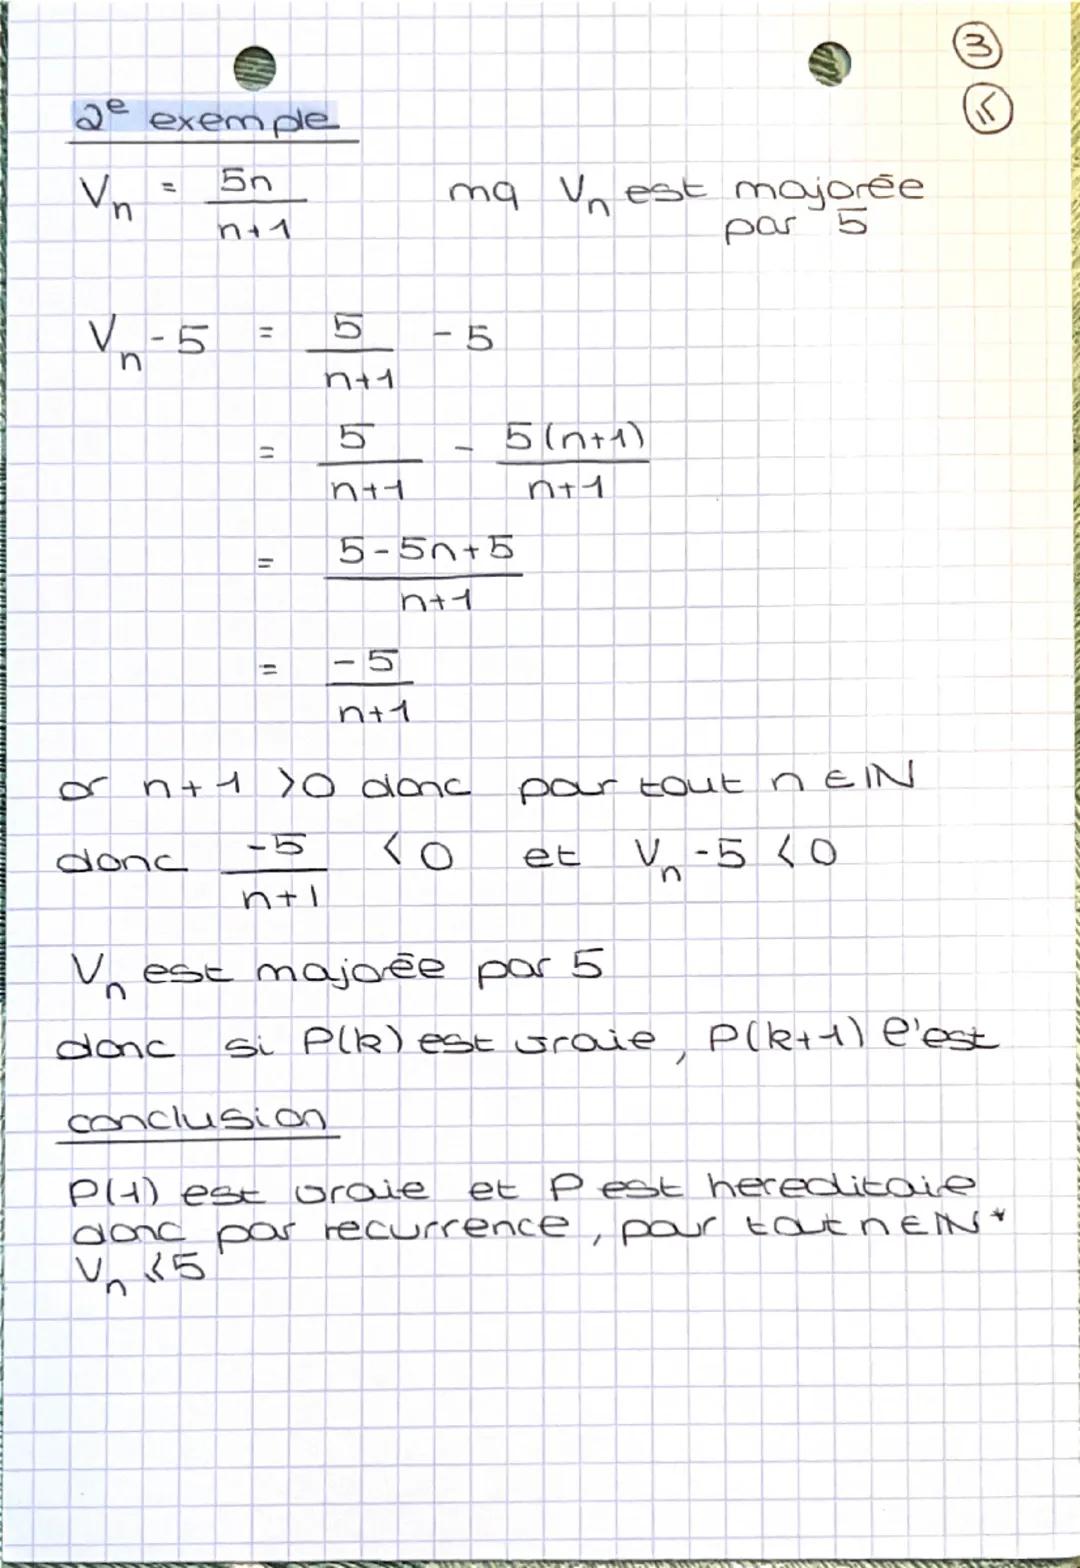 ③
⩽
2e exemple
Vn = 5n/n+1 mq Vn est majorée
par 5
Vn - 5 = 5/n+1 - 5
= 5/n+1 - 5(n+1)/n+1
= 5-5n+5/n+1
= -5/n+1
or n+1 >0 donc pour tout n ∈ IN
donc -5/n+1 <0 et Vn-5 <0
Vn est majorée par 5
donc si P(k) est vraie, P(k+1) l'est
conclusion
P(1) est vraie et P est hereditaie
donc par recurrence, pour tout n ∈ IN*
Vn ⩽5